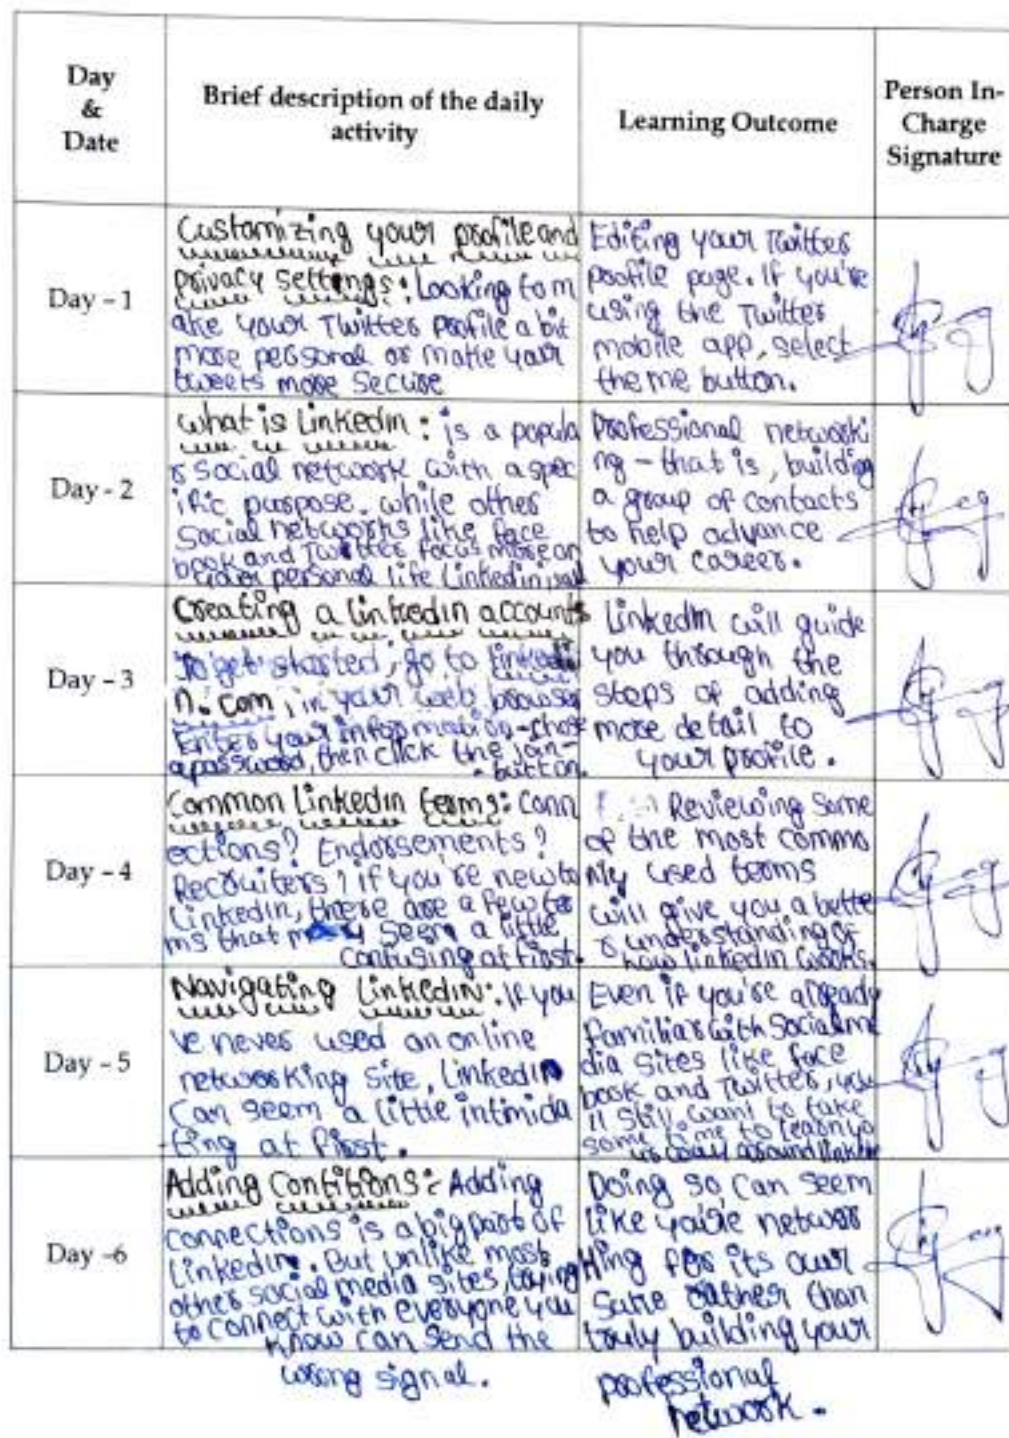 Day
&
Date
Brief description of the daily
activity
Learning Outcome
Person In-
Charge
Signature
Day - 1
Customizing your profile and
privacy settings: Looking to m
ake your Twitter profile a bit
more personal or make your
tweets more secure
Editing your Twitter
profile page. If you're
using the Twitter
mobile app, select
the me button.
Day - 2
What is Linkedin: is a popula
r social network with a spec
ific purpose. while other
Social networks like face
book and Twitter focus more on
your personal life Linkedin is
Professional networki
ng - that is, building
a group of contacts
to help advance
your career.
Day - 3
Creating a linkedin accounts
To get started, go to linkedi
n.com, in your web browser
Enter your information - chose
a password, then click the join-
button.
LinkedIn will guide
you through the
steps of adding
more detail to
your profile.
Day - 4
Common Linkedin terms: Conn
ections? Endorsements?
Recruiters? if you're new to
Linkedin, there are a few ter
ms that may seem a little
confusing at first.
Reviewing some
of the most commo
nly used terms
will give you a bette
r understanding of
how linkedin works.
Day - 5
Navigating LinkedIN: If you
've never used an online
networking site, Linkedin
can seem a little intimida
ting at first.
Even if you're already
familiar with Social me
dia sites like face
book and Twitter, you
'll still want to take
some time to learn yo
ur way around linkedin
Day -6
Adding Contitions: Adding
connections is a big part of
Linkedin. But unlike most
other social media sites, trying
to connect with everyone you
know can send the
wrong signal.
Doing so, can seem
like you're networ
king for its own
sake rather than
truly building your
professional
network.